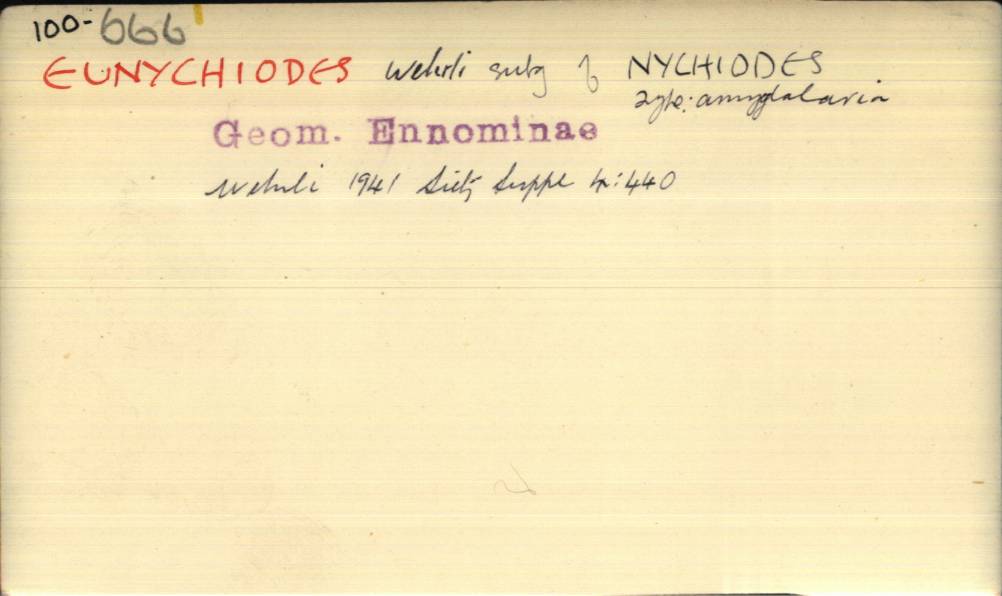 100-666
EUNYCHIODES Wehrli subg of NYCHIODES
type: amygdalaria
Geom. Ennominae
Wehrli 1941 Seitz Suppl 4:440